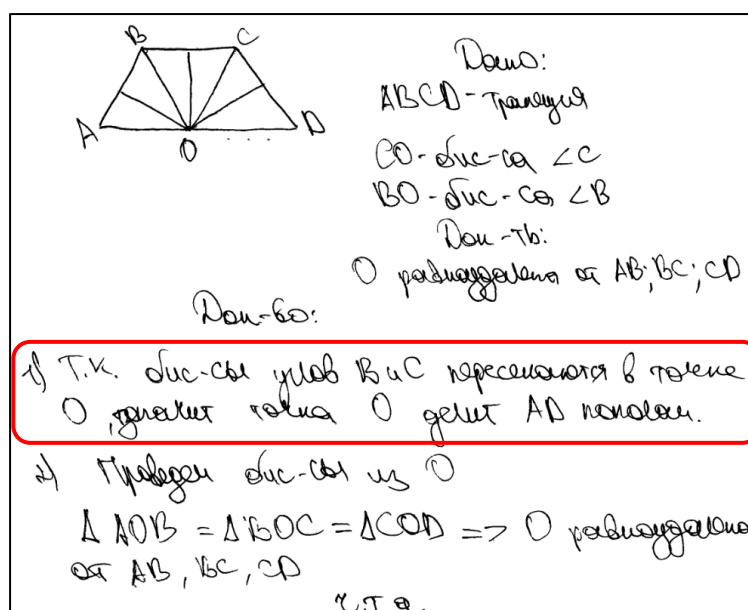 B C
A O D
Дано:
ABCD - трапеция
CO - бис-са ∠C
BO - бис-са ∠B
Док-ть:
O равноудалена от AB; BC; CD
Док-во:
1) Т.к. бис-сы углов B и C пересекаются в точке
O, значит точка O делит AD пополам.
2) Проведем бис-сы из O
Δ AOB = Δ BOC = Δ COD => O равноудалена
от AB, BC, CD
ч.т.д.